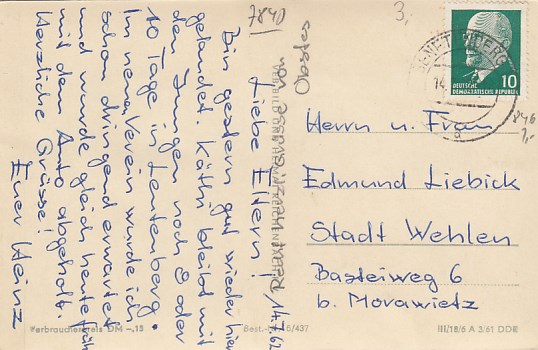 7840
3,
Liebe Eltern! 14.7.62
Bin gestern gut wieder hier
gelandet. Käthi bleibt mit
den Jungen noch 8 oder
10 Tage in Leutenberg.
Im neuen Verein wurde ich
schon dringend erwartet
und wurde gleich heute früh
mit dem Auto abgeholt.
Herzliche Grüsse!
Euer Heinz
Obstes
von
DEUTSCHE
DEMOKRATISCHE REPUBLIK
10
14.
846
Herrn u. Frau
Edmund Liebick
Stadt Wehlen
Basteiweg 6
b. Morawietz
Verbraucherpreis DM -.15
Best.-Nr. 6/437
III/18/6 A 3/61 DDR